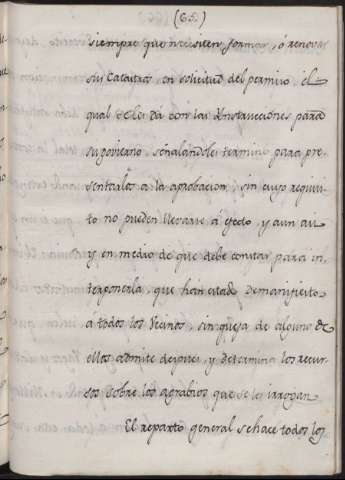 (65)
siempre que necesiten formar, ó renovar
sus Catastros, en solicitud del permiso el
qual se les dá con las Ynstrucciones para
su govierno, señalandoles termino para pre-
sentarlos a la aprobacion, sin cuyo requisi-
to no pueden llevarse á efecto, y aun asi
y en medio de que debe constar para in-
terponerla, que han estado de manifiesto
á todos los Vecinos, sin queja de alguno de
ellos admite despues, y determina los recur-
sos sobre los agrabios que se les irrogan
El reparto general se hace todos los